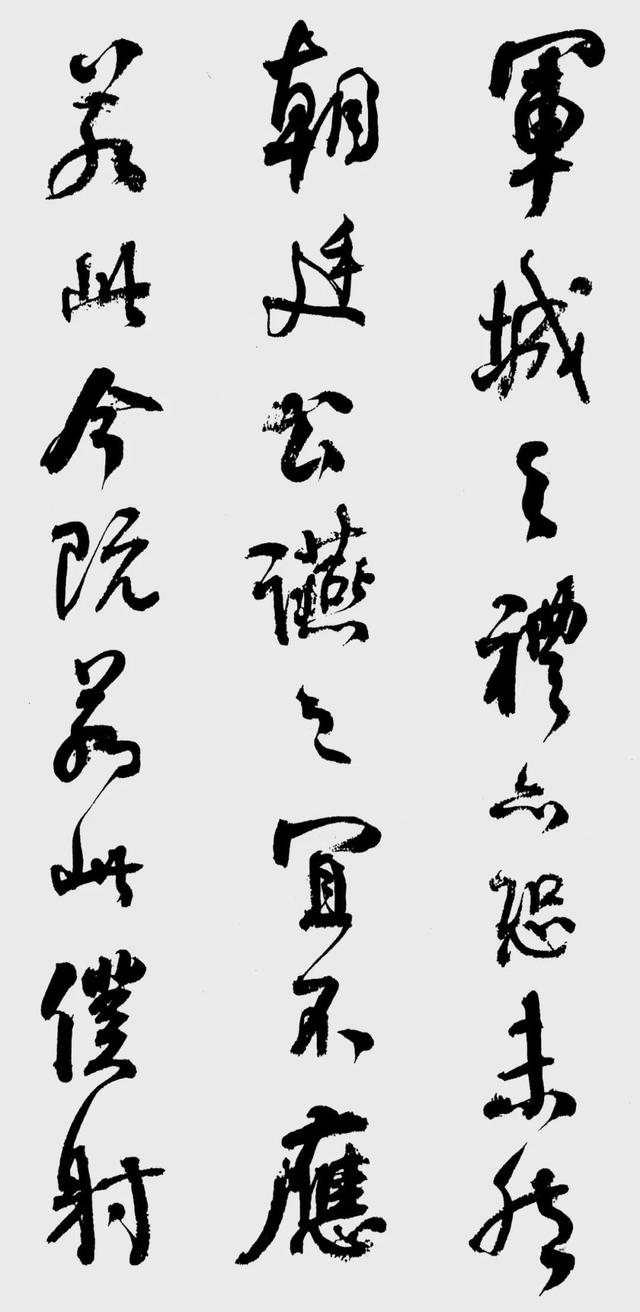 軍城之禮亦恐未然
朝廷公讌之宜不應
若此今既若此僕射